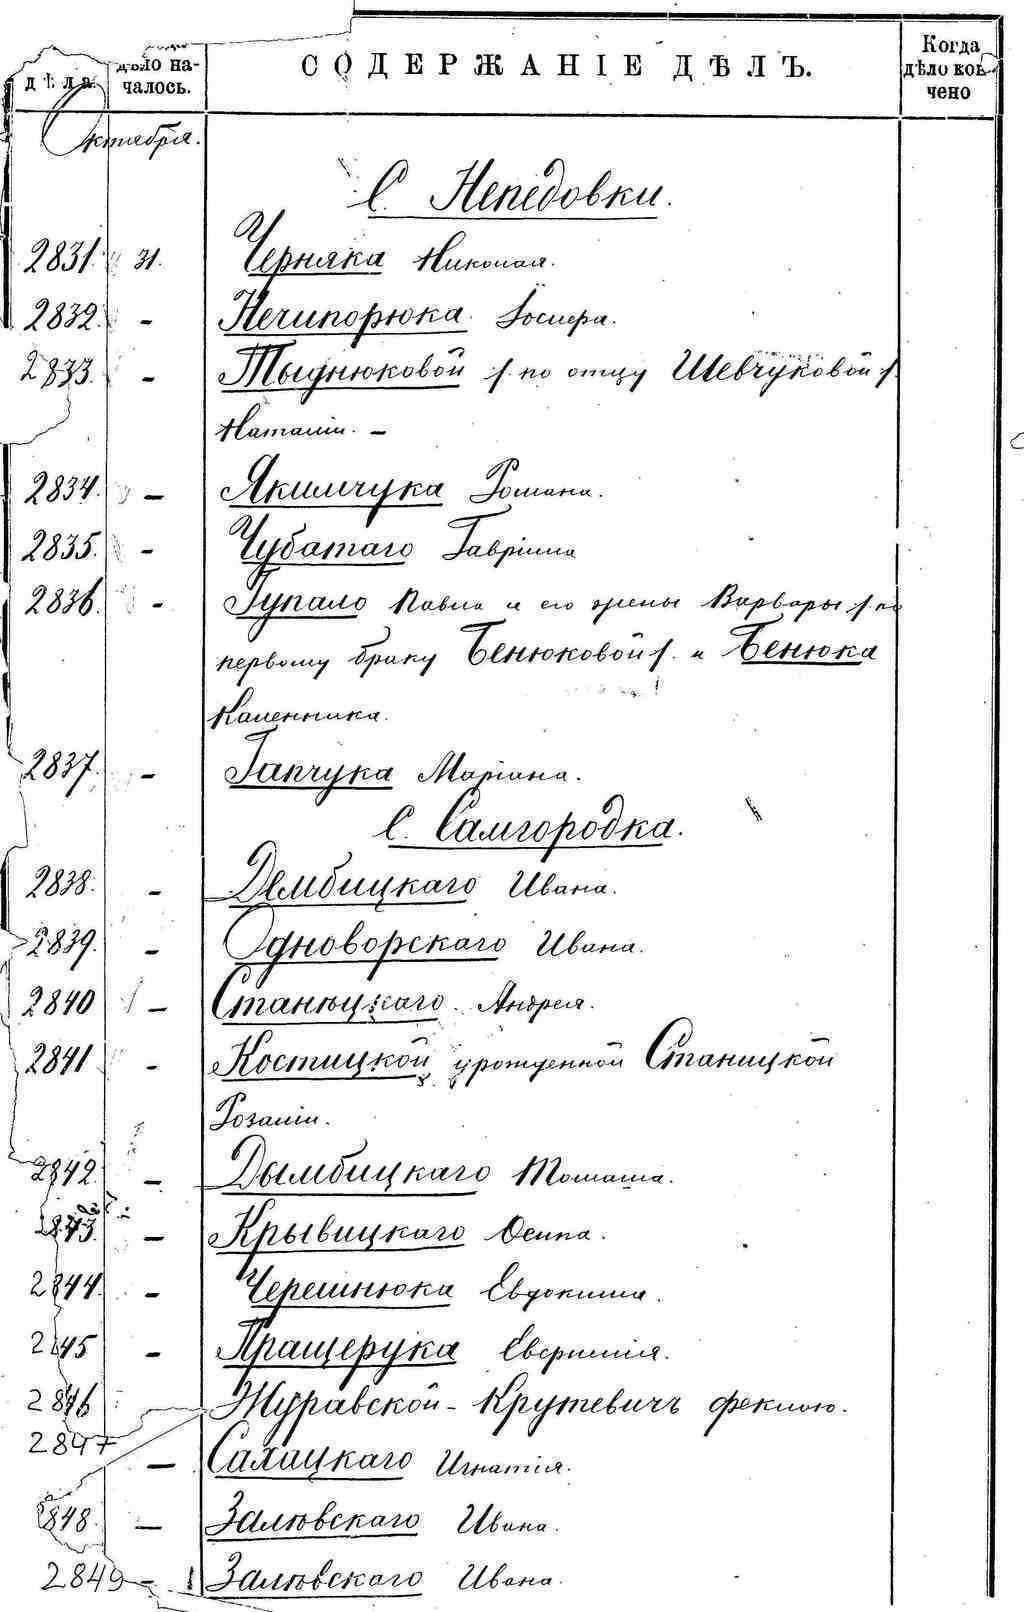 дѣла
дѣло на-
чалось.
СОДЕРЖАНІЕ ДѢЛЪ.
Когда
дѣло кон-
чено
Октября.
С. Непедовки.
2831. 31. Черняка Николая.
2832. - Нечипорюка Іосифа.
2833. - Тыднюковой /. по отцу Шевчуковой /.
Наталіи. -
2834. - Якимчука Романа.
2835. - Чубатаго Гавріила
2836. - Гупало Павла и его жены Варвары /. по
первому браку Бенюковой /. и Бенюка
Каленника.
2837. - Гапчука Маріана.
С. Самгородка.
2838. - Дембицкаго Ивана.
2839. - Одноворскаго Ивана.
2840 - Станіцкаго Андрея.
2841 - Костицкой урожденной Станицкой
Розаліи.
2842. - Дымбицкаго Томаша.
2843. - Крывицкаго Осипа.
2844. - Черешнюка Евдокима.
2845 - Пращерука
2846 Журавской - Крутевичъ Феклою.
2847 - Салацкаго Игнатія.
2848. - Залѣвскаго Ивана.
2849 - Залѣвскаго Ивана.